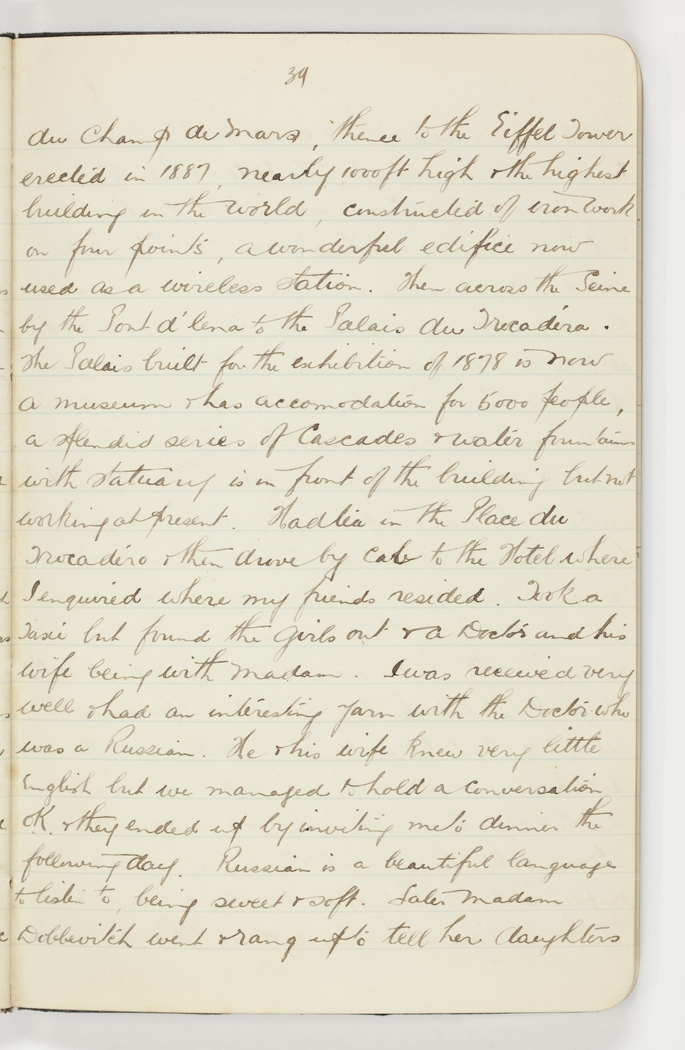 39
du Champ de Mars, thence to the Eiffel Tower
erected in 1887, nearly 1000ft high & the highest
building in the world, constructed of iron work
on four points, a wonderful edifice now
used as a wireless station. Then across the Seine
by the Pont d'Iena to the Palais du Trocadéra.
The Palais built for the exhibition of 1878 is now
a museum & has accomodation for 5000 people,
a splendid series of Cascades & water fountains
with statuary is in front of the building but not
working at present. Had tea in the Place du
Trocadéro & then drove by cab to the Hotel where
I enquired where my friends resided. Took a
Taxi but found the girls out & a Doctor and his
wife being with Madam. I was received very
well & had an interesting yarn with the Doctor who
was a Russian. He & his wife knew very little
English but we managed to hold a conversation
OK. & they ended up by inviting me to dinner the
following day. Russian is a beautiful language
to listen to, being sweet & soft. Later Madam
Dobbevitch went & rang up to tell her daughters